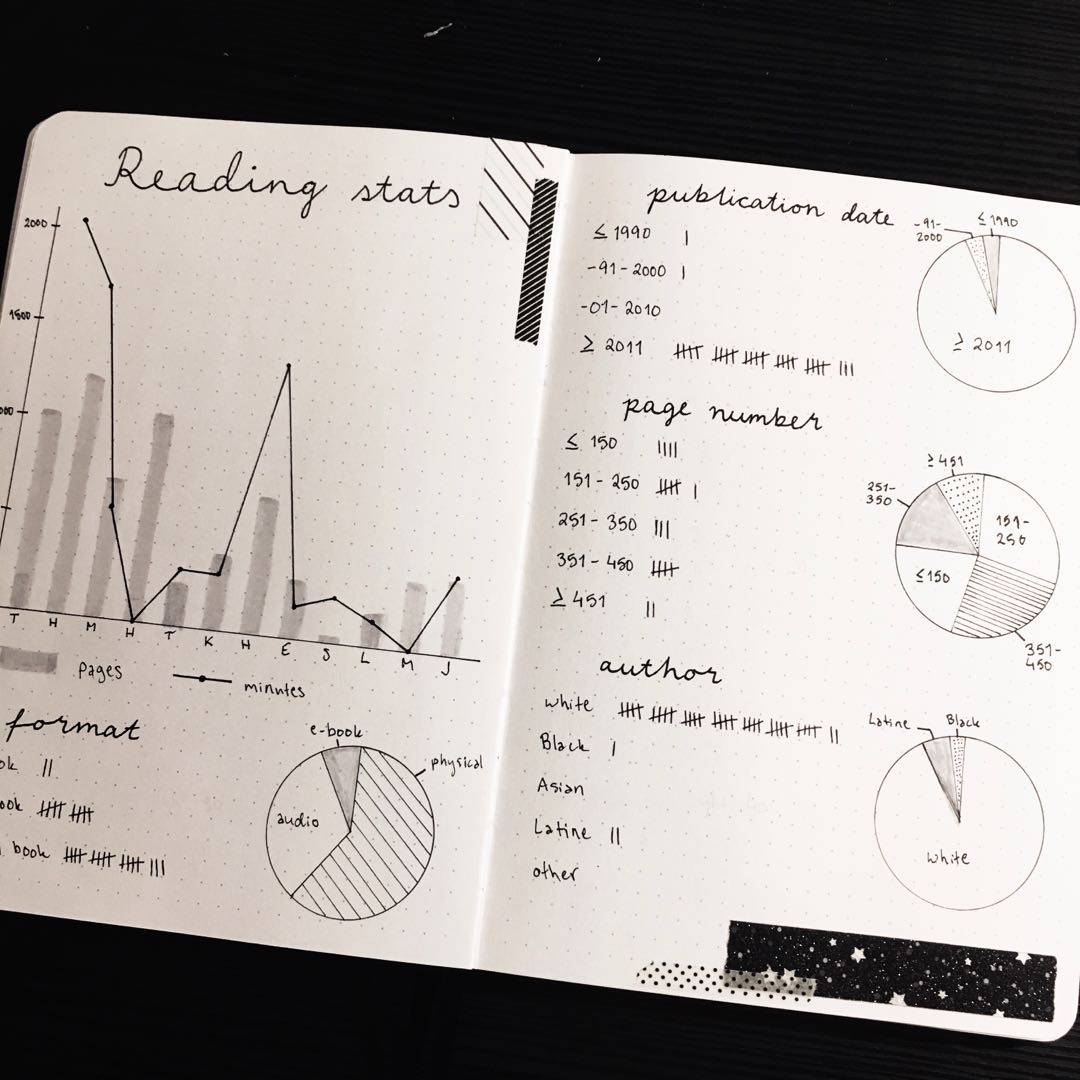 Reading stats
2000
1500
000
T H M H T K H E S L M J
pages
minutes
format
ok ||
ook |||| ||||
l book |||| |||| |||| |||
e-book
physical
audio
publication date
≤ 1990 |
-91-2000 |
-01-2010
≥ 2011 |||| |||| |||| |||| |||| |||
-91-
2000
≤ 1990
≥ 2011
page number
≤ 150 ||||
151-250 |||| |
251-350 |||
351-450 ||||
≥ 451 ||
≥ 451
251-
350
151-
250
≤150
351-
450
author
white |||| |||| |||| |||| |||| |||| |||| ||
Black |
Asian
Latine ||
other
Latine
Black
white